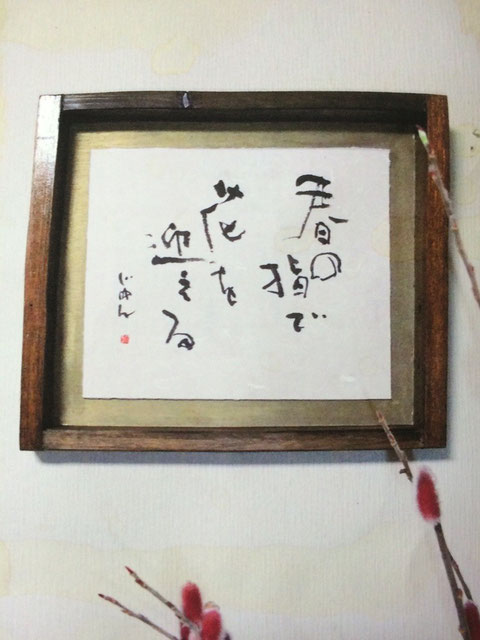 春の
指で
花を
迎える
じゅん